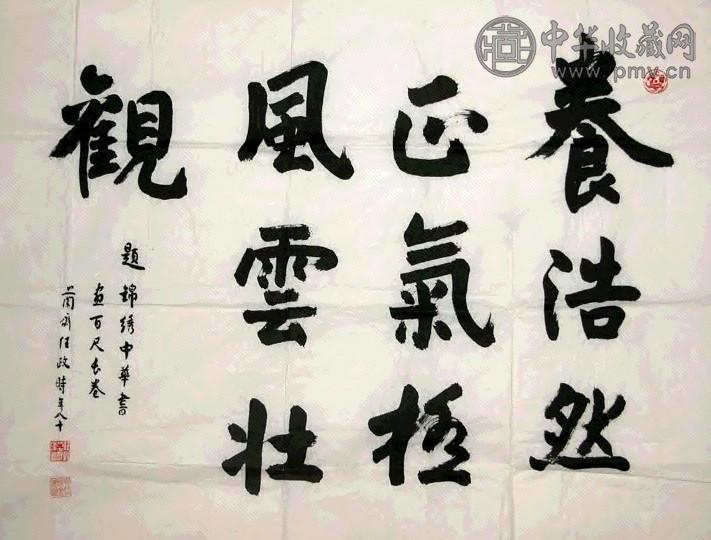 中华收藏网
www.pmv.cn
養浩然
正氣極
風雲壮
觀
題錦绣中華書
画百尺長卷
蘭斋任政時年八十